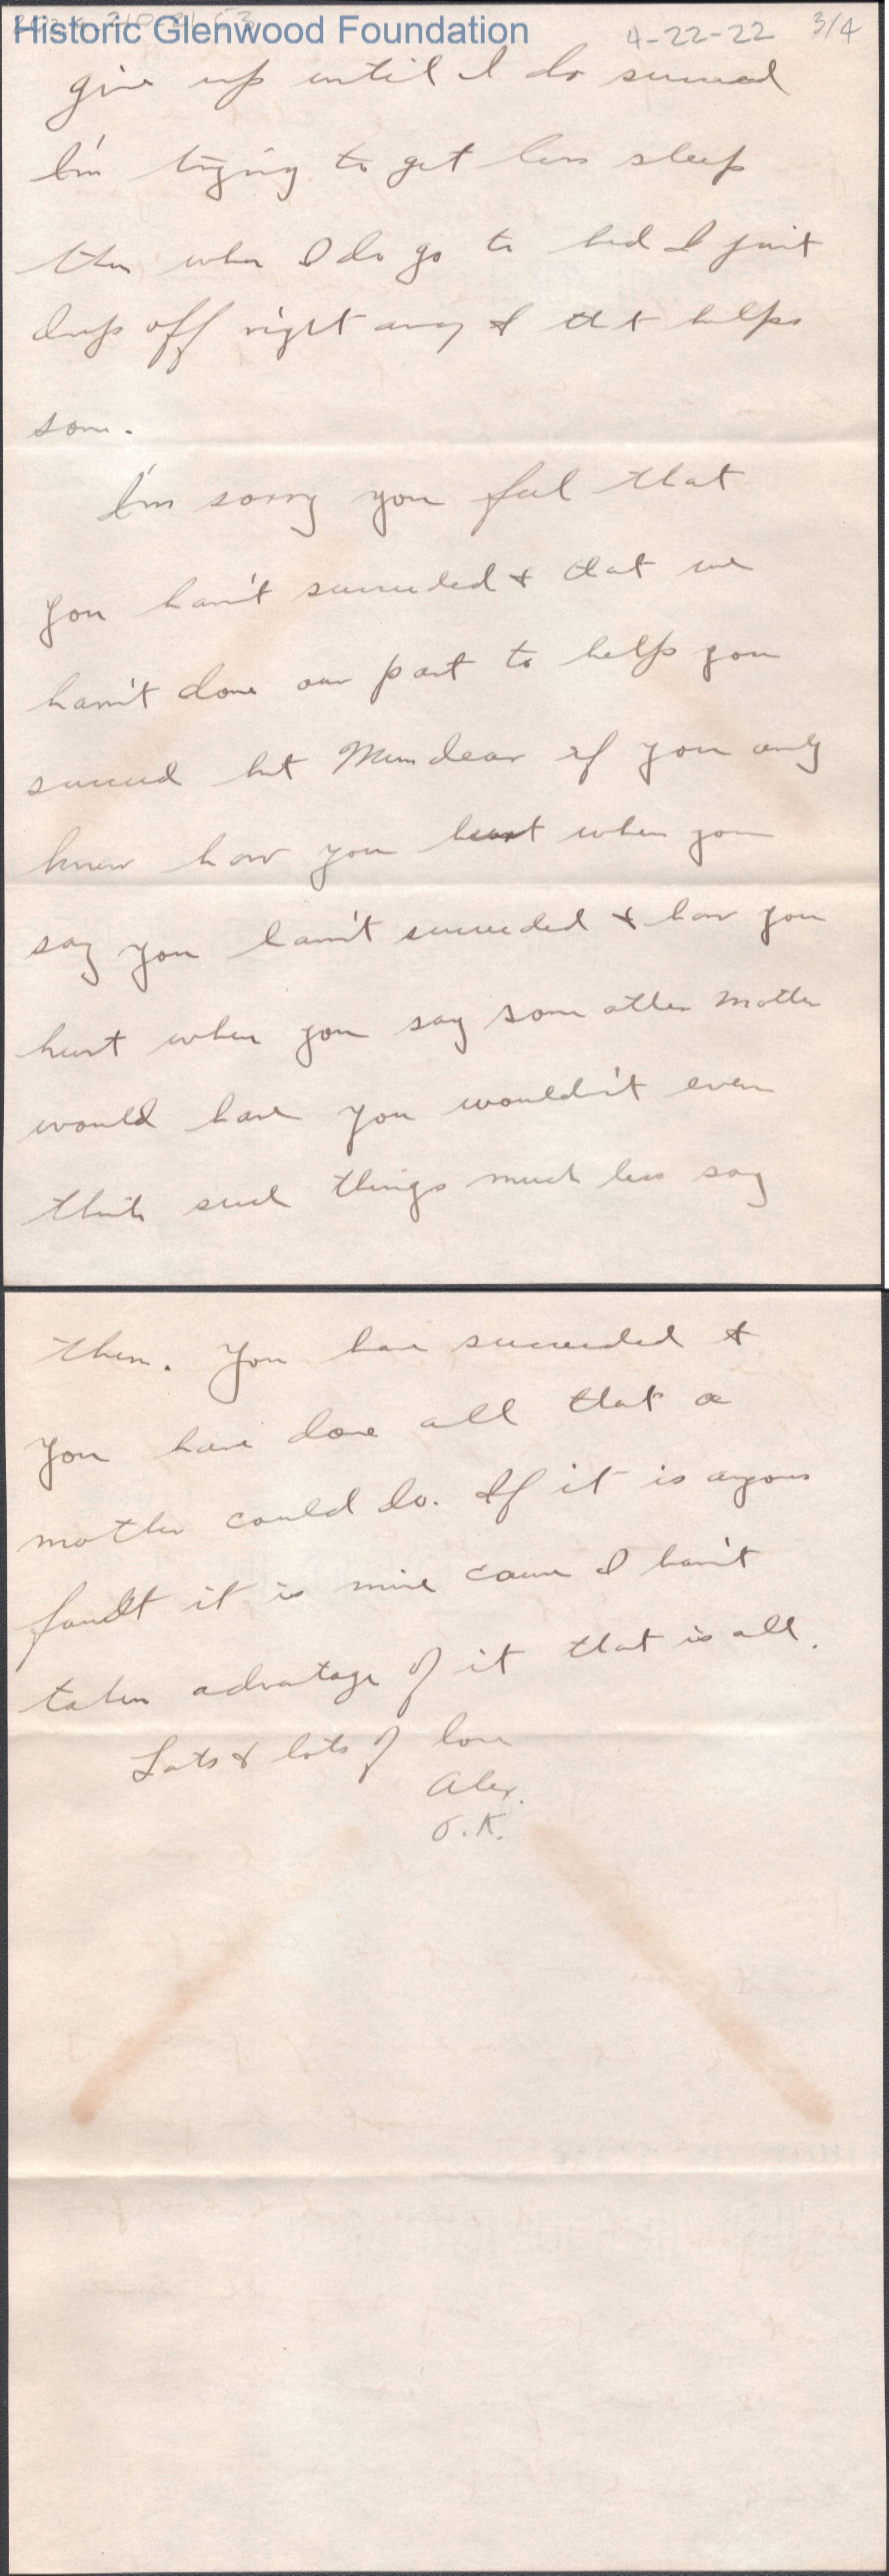 Historic Glenwood Foundation
4-22-22 3/4
give up until I do succeed
I'm trying to get less sleep
then when I do go to bed I just
drop off right away & that helps
some.
I'm sorry you feel that
you havn't succeeded & that we
havn't done our part to help you
succeed but Mum dear if you only
knew how you hurt when you
say you havn't succeeded & how you
hurt when you say some other mother
would have you wouldn't even
think such things much less say
them. You have succeeded &
you have done all that a
mother could do. If it is anyones
fault it is mine cause I havn't
taken advantage of it that is all.
Lots & lots of love
Alex.
O.K.